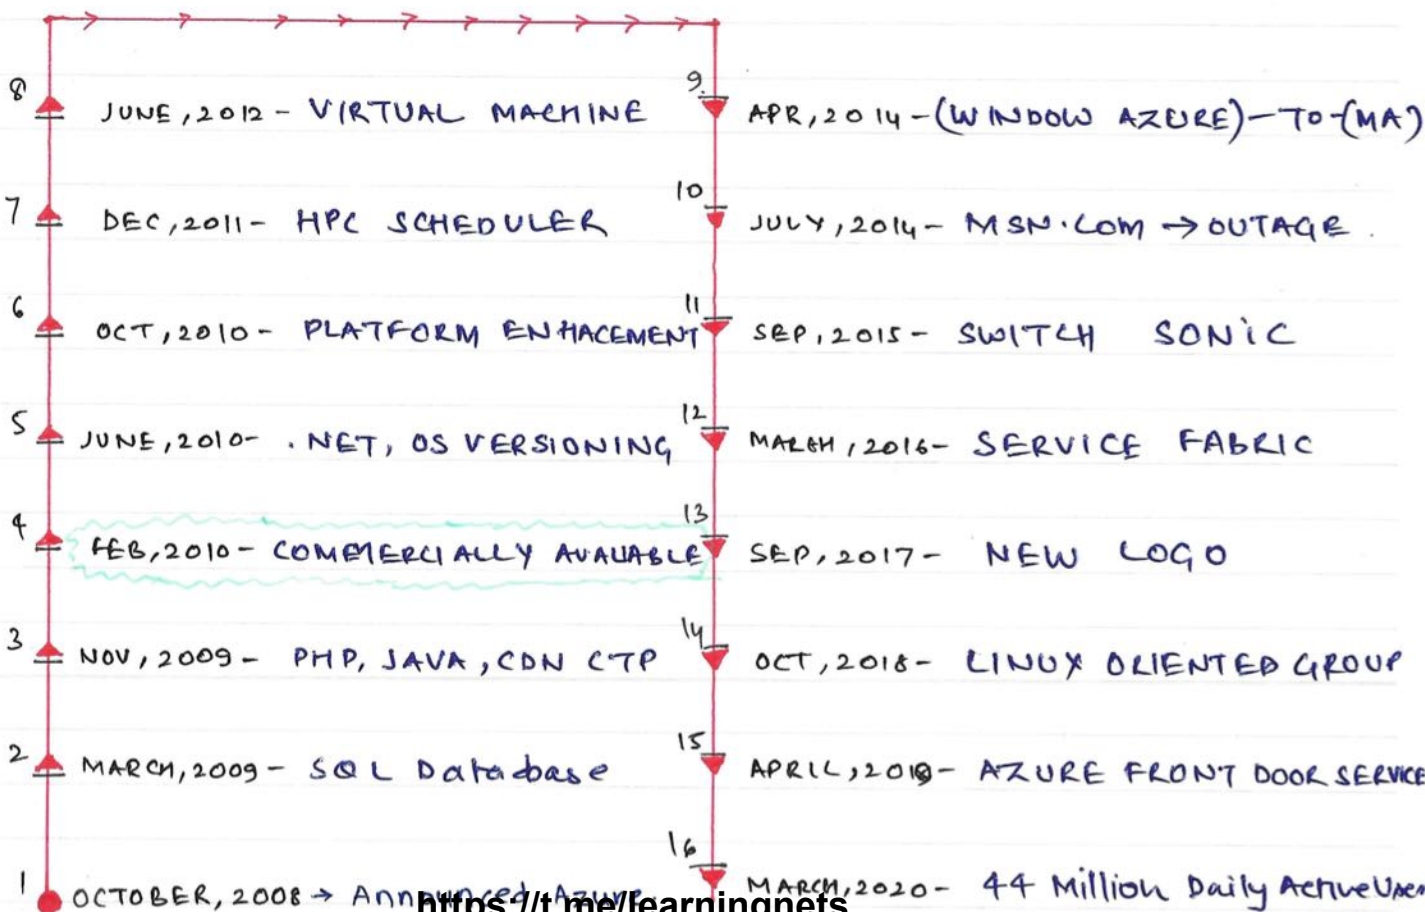 8
JUNE, 2012 - VIRTUAL MACHINE
7
DEC, 2011 - HPC SCHEDULER
6
OCT, 2010 - PLATFORM ENHACEMENT
5
JUNE, 2010 - .NET, OS VERSIONING
4
FEB, 2010 - COMMERCIALLY AVALIABLE
3
NOV, 2009 - PHP, JAVA, CDN CTP
2
MARCH, 2009 - SQL Database
1
OCTOBER, 2008 → Announced Azure
9.
APR, 2014 - (WINDOW AZURE) - TO - (MA)
10
JULY, 2014 - MSN.COM → OUTAGE.
11
SEP, 2015 - SWITCH SONiC
12
MARCH, 2016 - SERVICE FABRIC
13
SEP, 2017 - NEW LOGO
14
OCT, 2018 - LINUX ORIENTED GROUP
15
APRIL, 2019 - AZURE FRONT DOOR SERVICE
16
MARCH, 2020 - 44 Million Daily Active User
https://t.me/learningnets